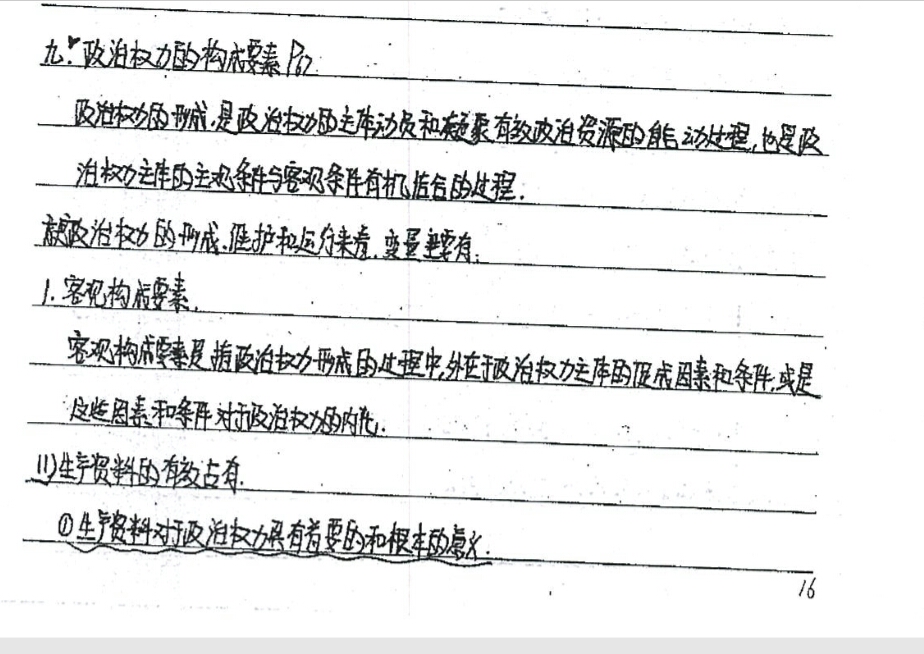 九. 政治权力的构成要素 P67
政治权力的形成,是政治权力的主体动员和凝聚有效政治资源的能动过程,也是政
治权力主体的主观条件与客观条件有机结合的过程.
政治权力的形成、维护和运行来看,变量主要有:
1. 客观构成要素.
客观构成要素是指政治权力形成的过程中,外在于政治权力主体的促成因素和条件,或是
这些因素和条件对于政治权力的内化.
(1)生产资料的有效占有.
①生产资料对于政治权力具有首要的和根本的意义.
16